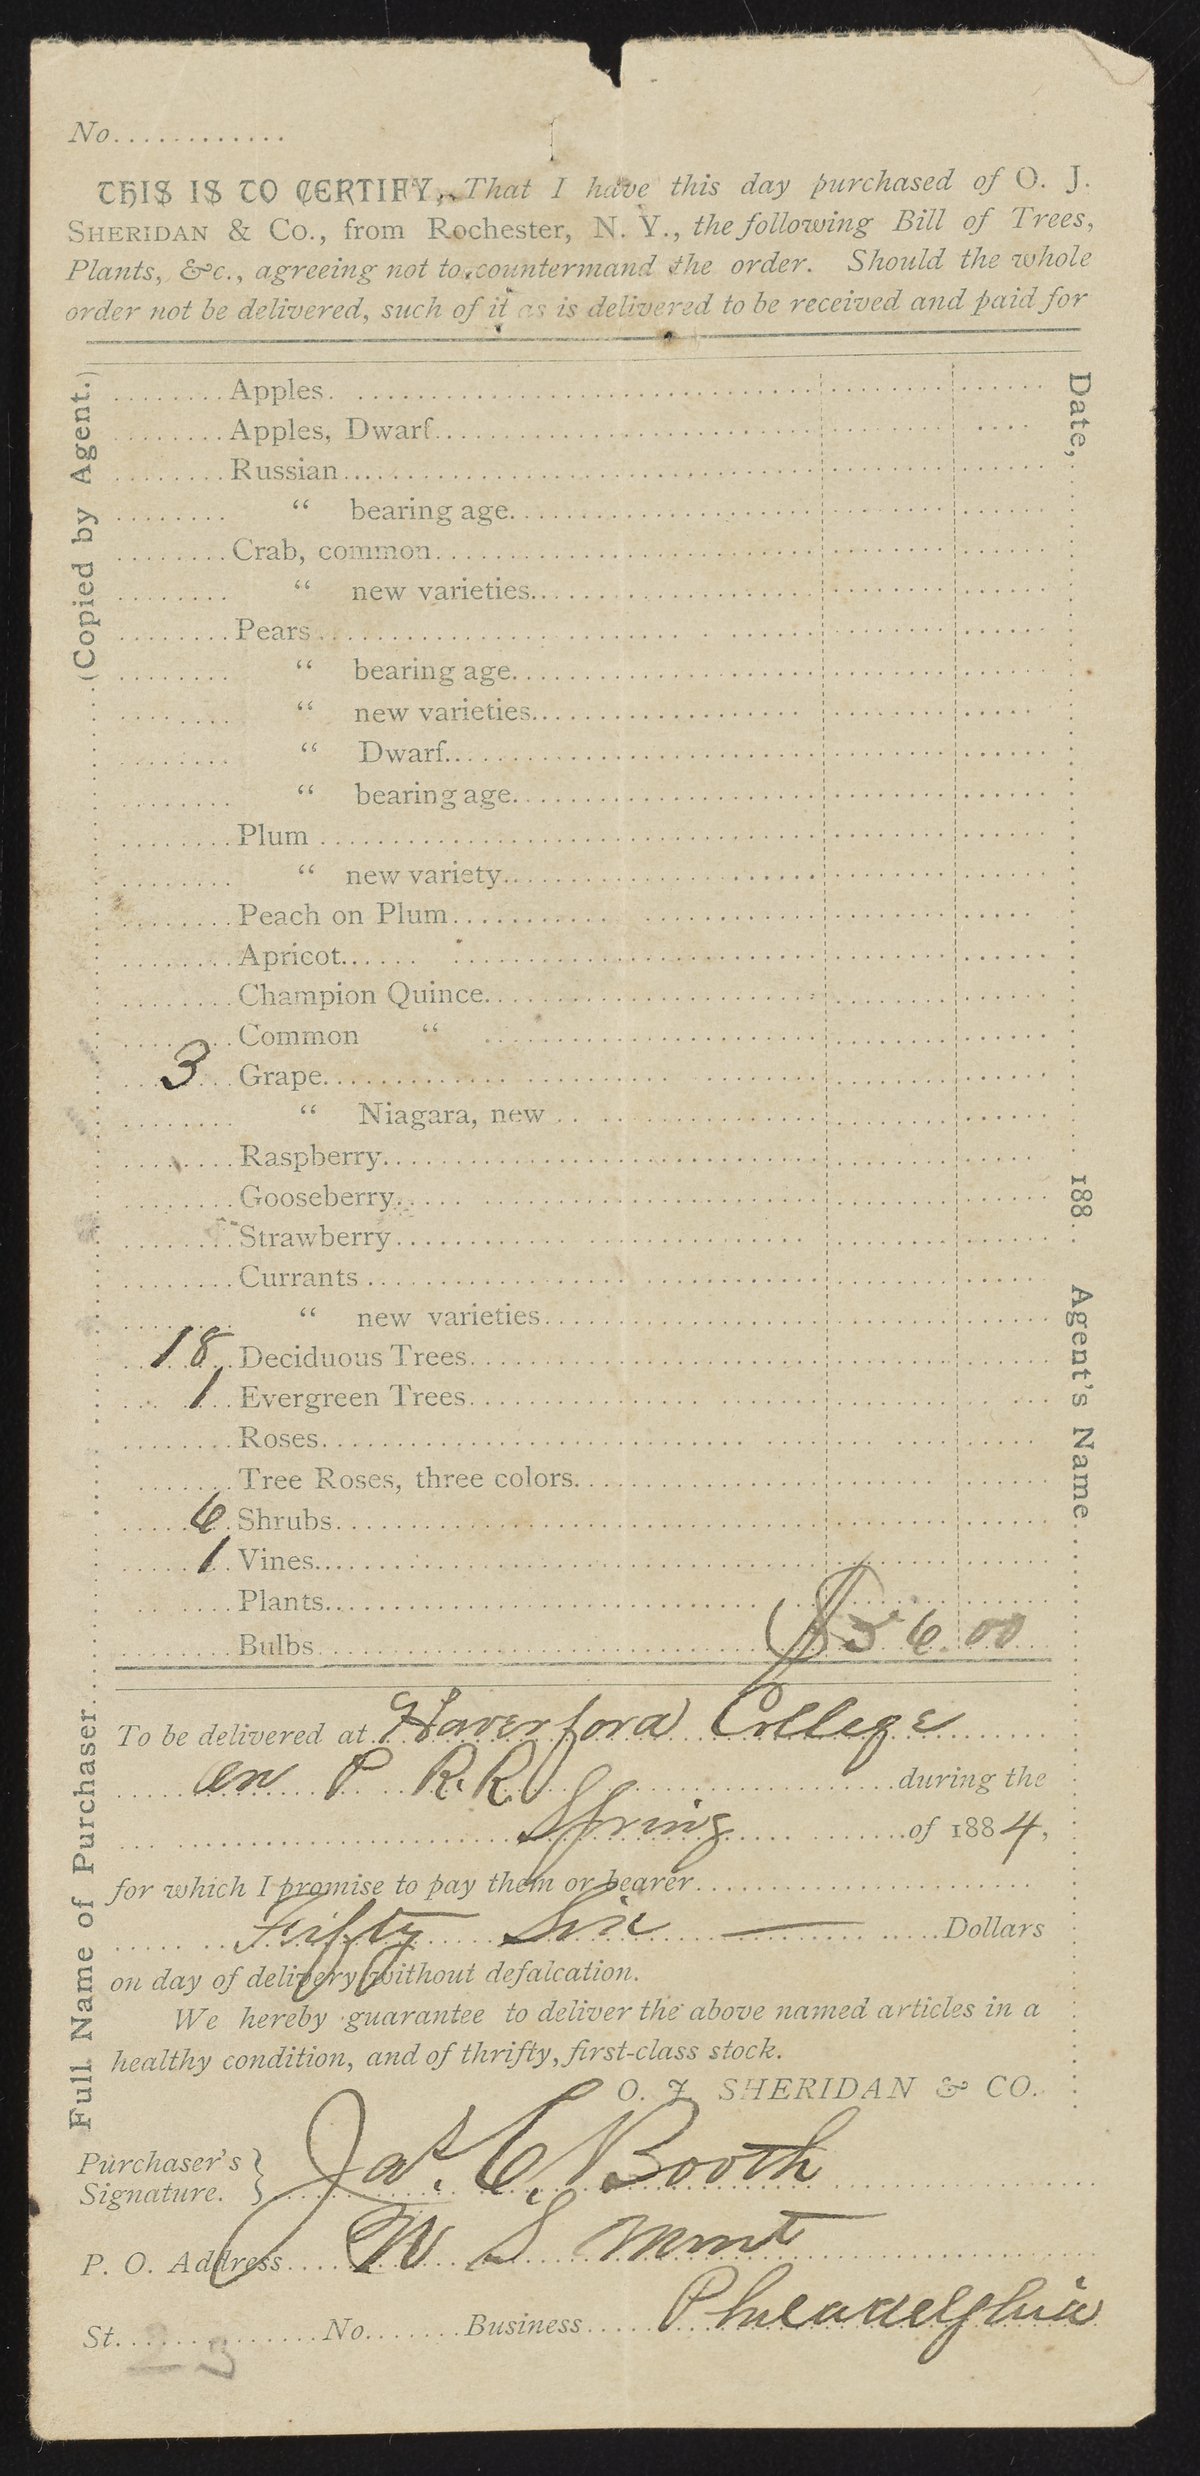 No............
THIS IS TO CERTIFY, That I have this day purchased of O. J.
SHERIDAN & Co., from Rochester, N. Y., the following Bill of Trees,
Plants, &c., agreeing not to countermand the order. Should the whole
order not be delivered, such of it as is delivered to be received and paid for
Apples
Apples, Dwarf
Russian
" bearing age
Crab, common
" new varieties
Pears
" bearing age
" new varieties
" Dwarf
" bearing age
Plum
" new variety
Peach on Plum
Apricot
Champion Quince
Common "
3 Grape
" Niagara, new
Raspberry
Gooseberry
Strawberry
Currants
" new varieties
18 Deciduous Trees
1 Evergreen Trees
Roses
Tree Roses, three colors
6 Shrubs
1 Vines
Plants
Bulbs $56.00
To be delivered at Haverford College
on P R. R. during the
Spring of 1884,
for which I promise to pay them or bearer
Fifty Six — Dollars
on day of delivery without defalcation.
We hereby guarantee to deliver the above named articles in a
healthy condition, and of thrifty, first-class stock.
O. J. SHERIDAN & CO.
Purchaser's Signature. } Jas. C. Booth
P. O. Address U S Mint
St. No. Business Philadelphia
Full Name of Purchaser (Copied by Agent.)
Date, 188 Agent's Name